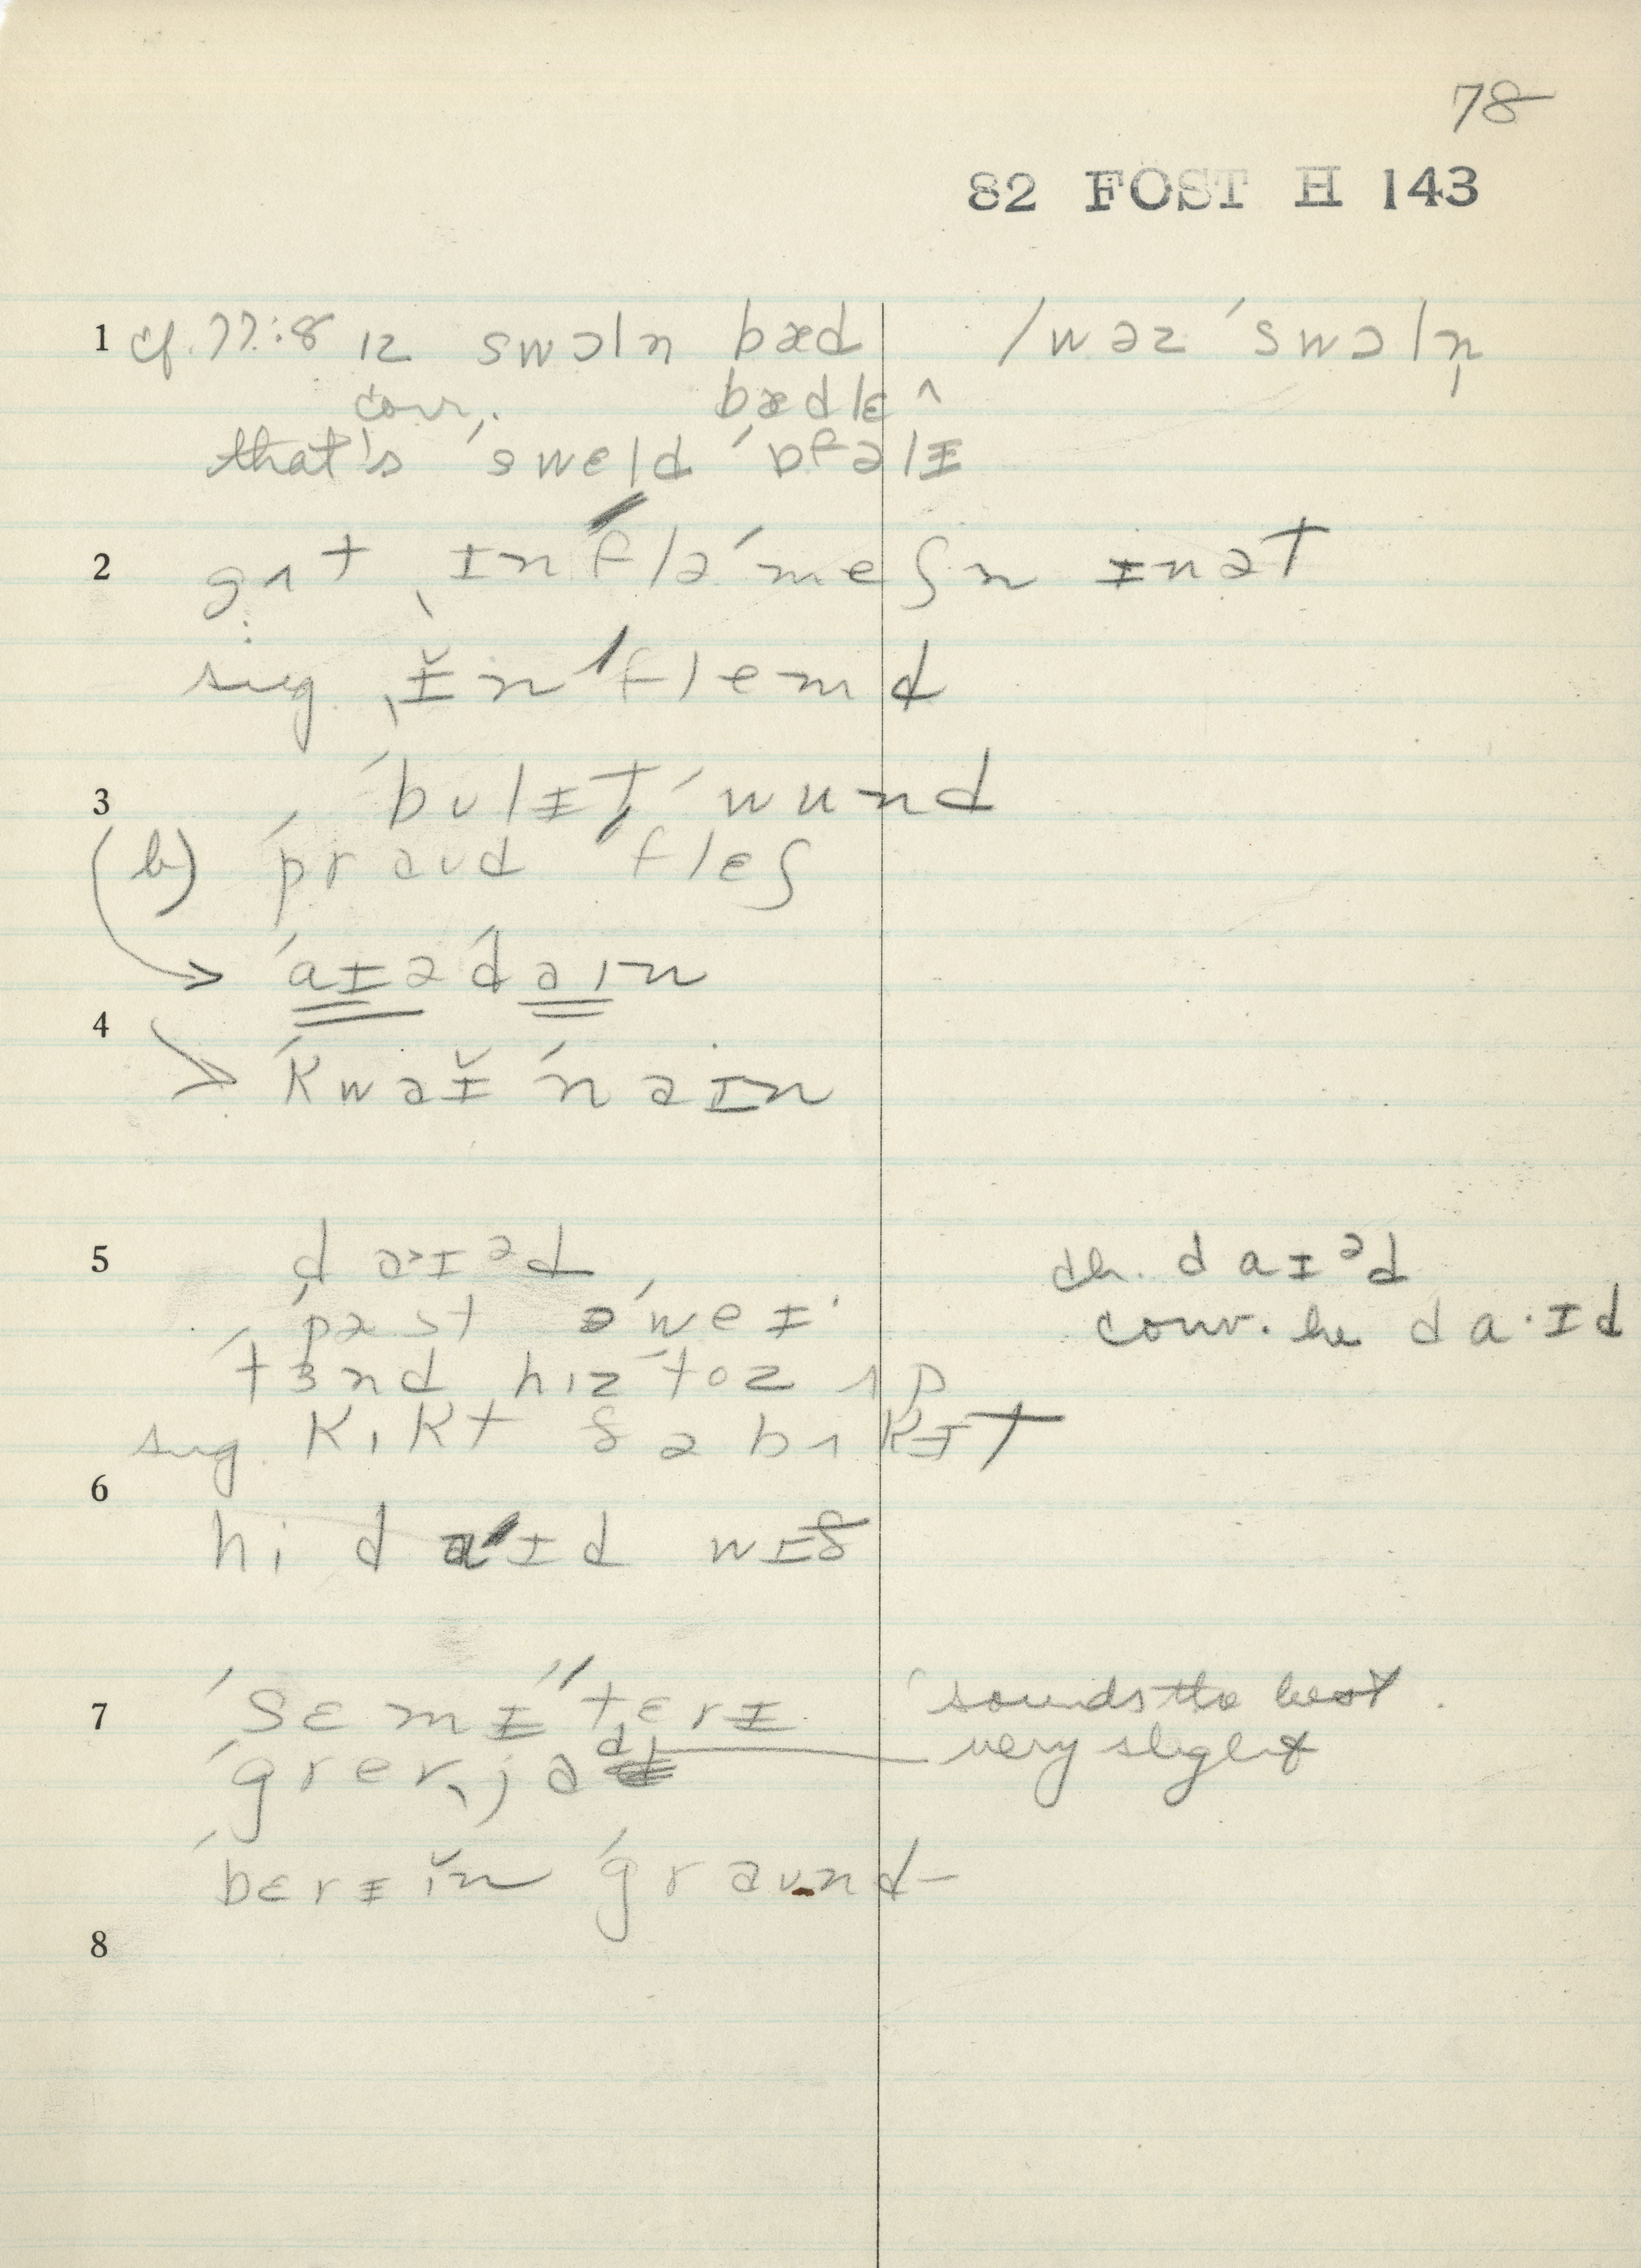 78
82 FOST H 143
1 cf. 77:8 ɪz swɔln bæd /wəz ˈswɔln̩
conv. bædlɛ ^
that's ˈsweld
2 gʌt ˌɪnfləˈmeʃn ɪnət
sug. ˌɪ̆nˈflemd
3 ˈbʊlɪt ˈwund
(b) ˈpraʊd ˈflɛʃ
→ ˈaɪəˈdaɪn
4 → ˈkwəɪ̆ˈnaɪn
5 daɪᵊd ch. daɪᵊd
ˈpæst əˈweɪ conv. he da·ɪd
ˈtɜnd hɪz ˈtoz ʌp
sug. kɪkt ðə bʌkɪt
6
hi daɪd wɪð
7 ˈsɛmɪˈˈtɛrɪ sounds the best.
ˈgrevˌjɑd very slight
ˈbɛrɪɪ̆n ˈgraʊnd–
8